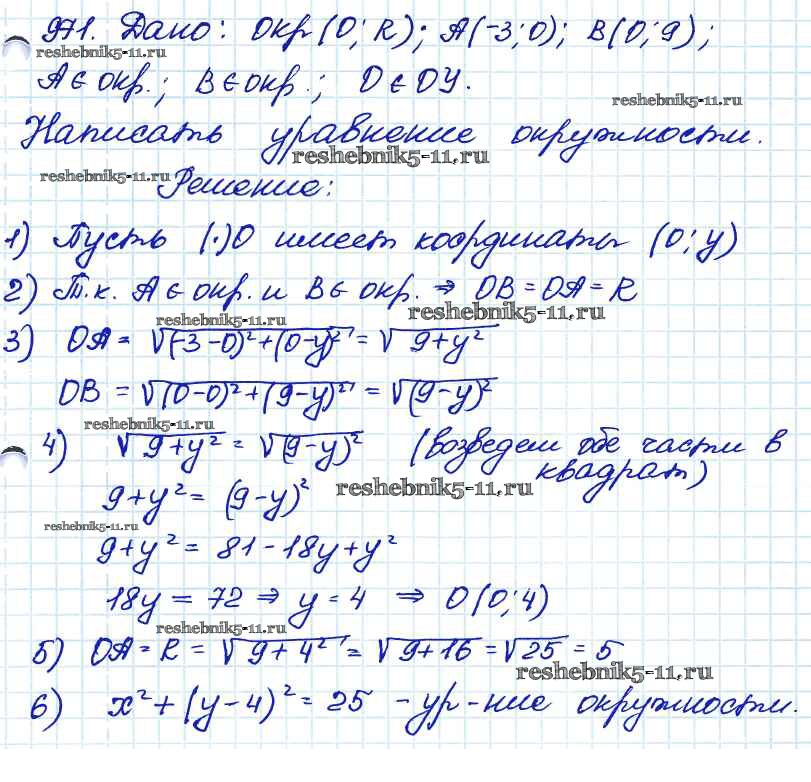 971. Дано: Окр(О; R); А(-3; 0); В(0; 9);
reshebnik5-11.ru
А ∈ окр.; В ∈ окр.; О ∈ ОУ.
reshebnik5-11.ru
Написать уравнение окружности.
reshebnik5-11.ru
reshebnik5-11.ru
Решение:
1) Пусть (·)О имеет координаты (0; y)
2) Т.к. А ∈ окр. и В ∈ окр. ⇒ ОВ = ОА = R
reshebnik5-11.ru
reshebnik5-11.ru
3) ОА = √((-3-0)²+(0-y)²) = √(9+y²)
ОВ = √((0-0)²+(9-y)²) = √((9-y)²)
reshebnik5-11.ru
4) √(9+y²) = √((9-y)²) (возведем обе части в
квадрат)
reshebnik5-11.ru
9+y² = (9-y)²
reshebnik5-11.ru
9+y² = 81-18y+y²
18y = 72 ⇒ y = 4 ⇒ О(0; 4)
reshebnik5-11.ru
5) ОА = R = √(9+4²) = √(9+16) = √25 = 5
reshebnik5-11.ru
6) x²+(y-4)² = 25 - ур-ние окружности.